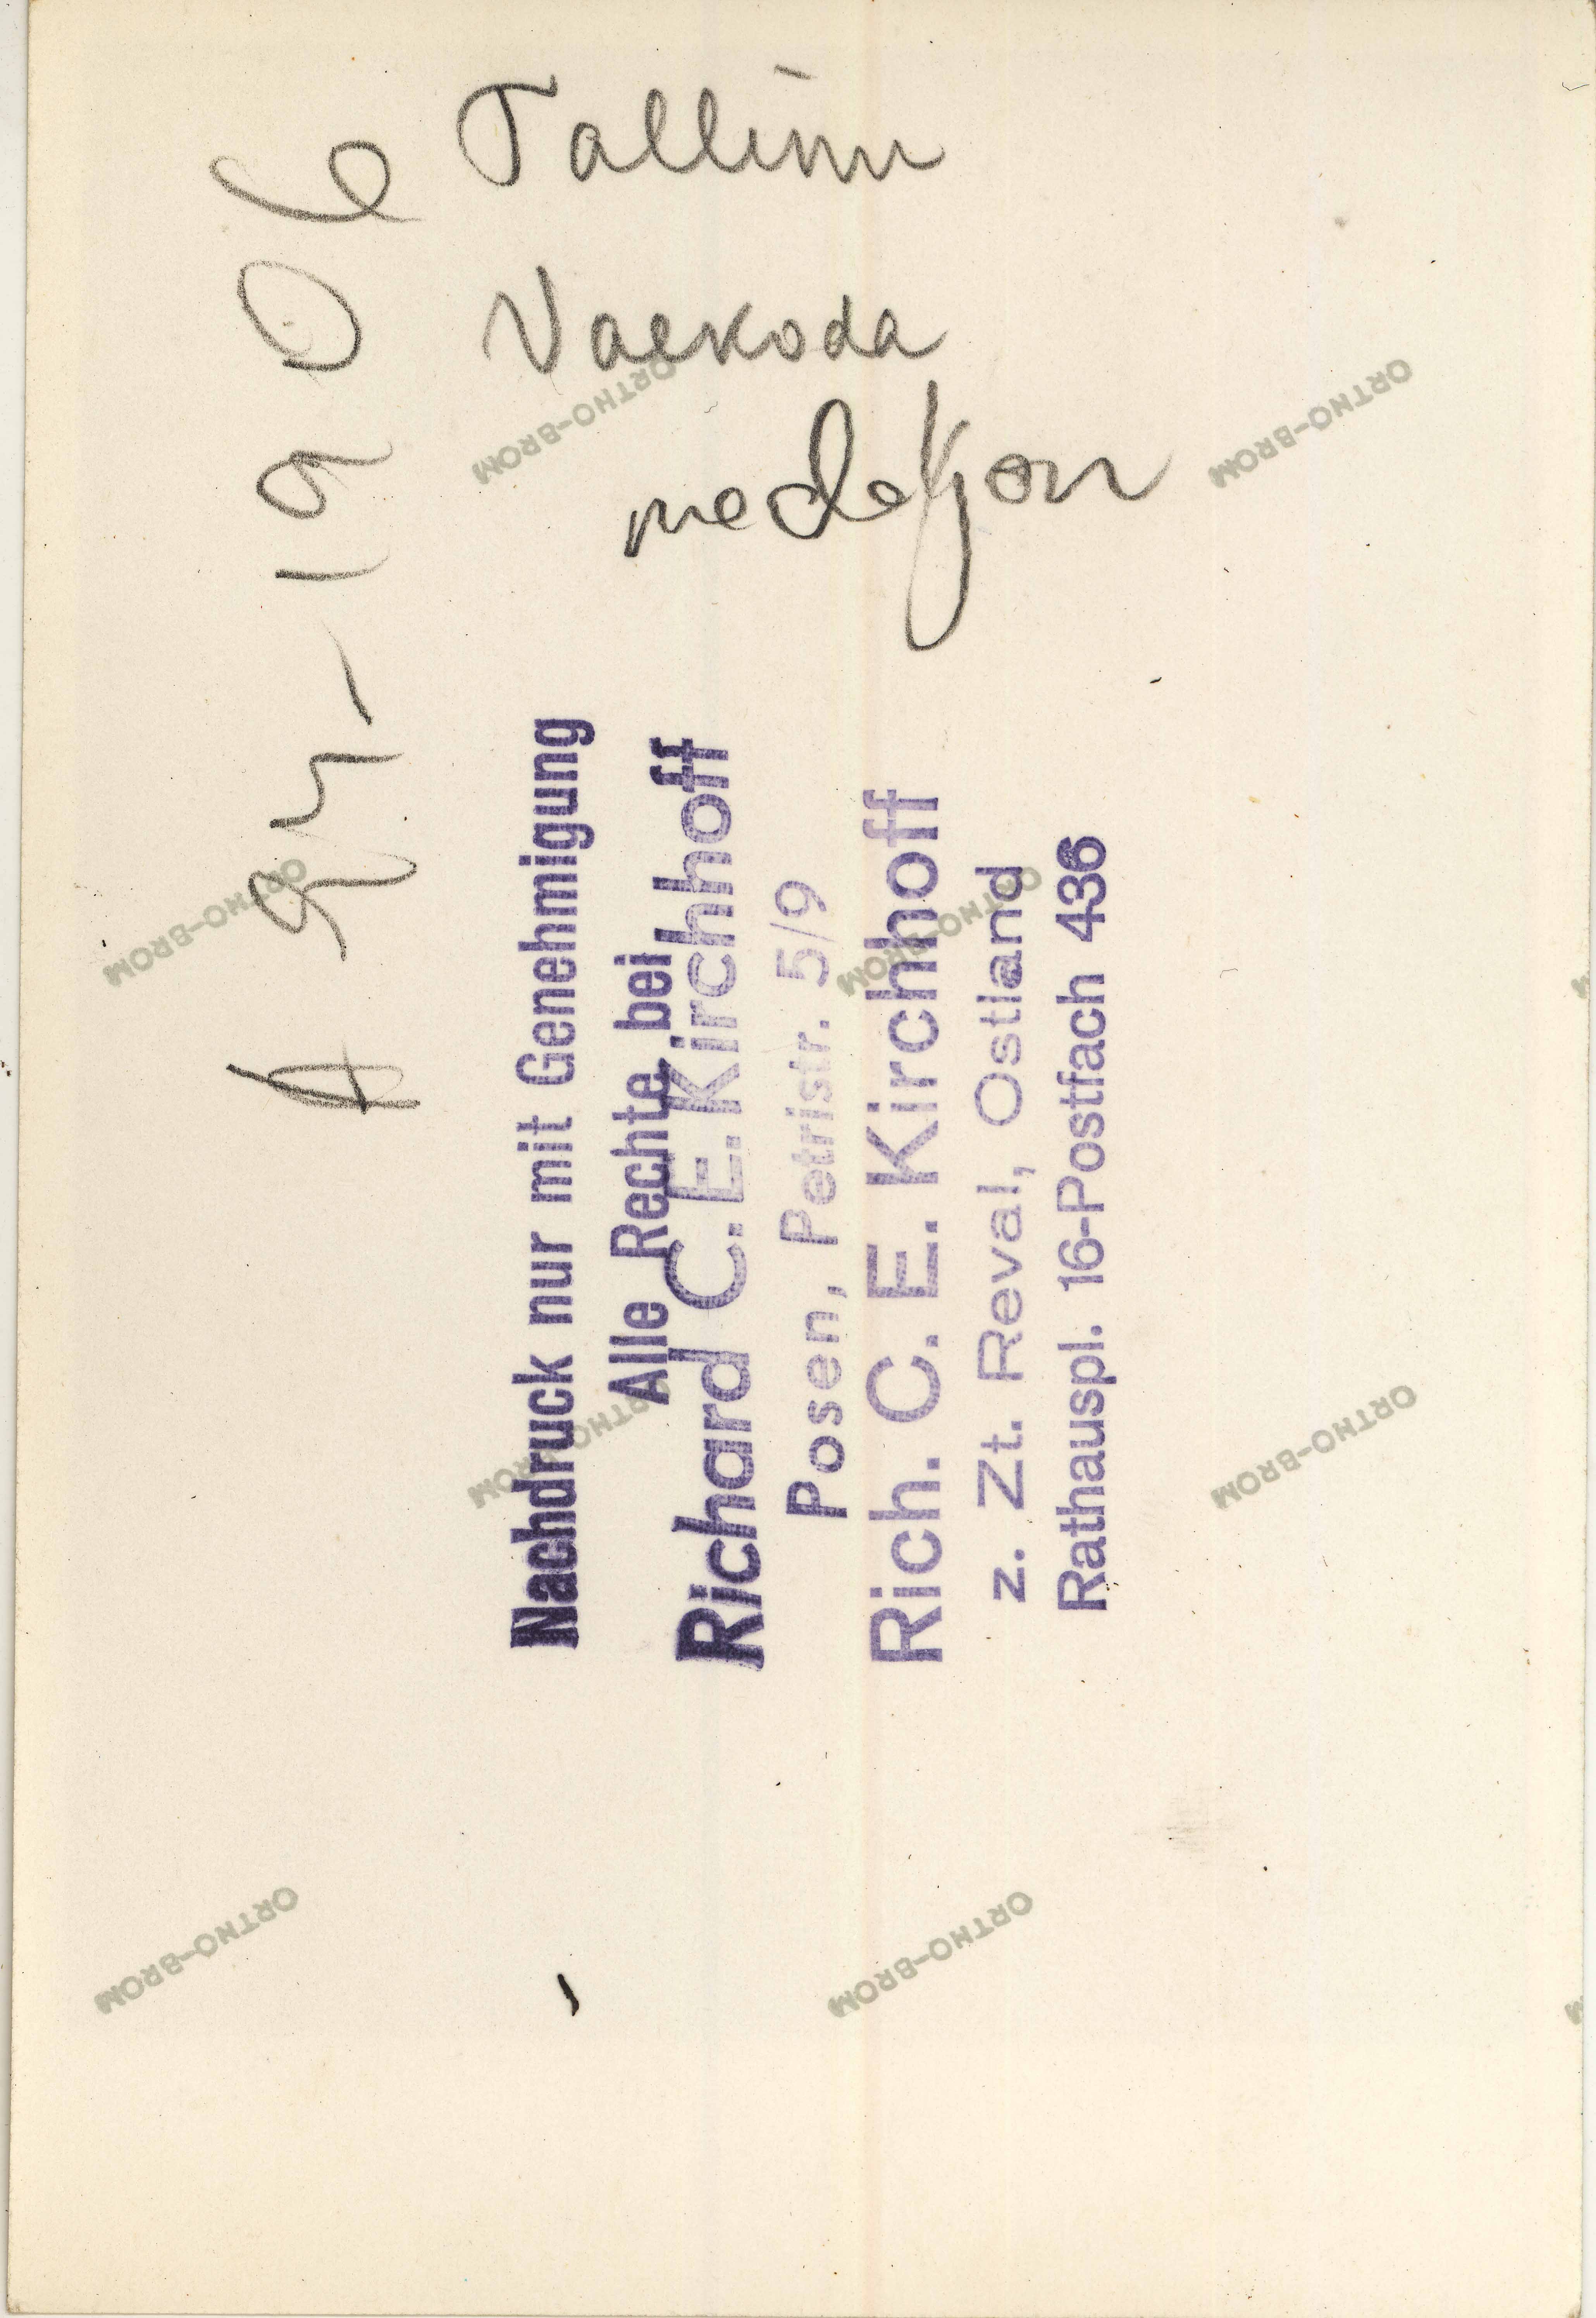 Tallinn
Vaekoda
medaljon
Nachdruck nur mit Genehmigung
Alle Rechte bei
Richard C. E. Kirchhoff
Posen, Petristr. 5/9
Rich. C. E. Kirchhoff
z. Zt. Reval, Ostland
Rathauspl. 16-Postfach 436
ORTHO-BROM
ORTHO-BROM
ORTHO-BROM
ORTHO-BROM
ORTHO-BROM
ORTHO-BROM
ORTHO-BROM
ORTHO-BROM